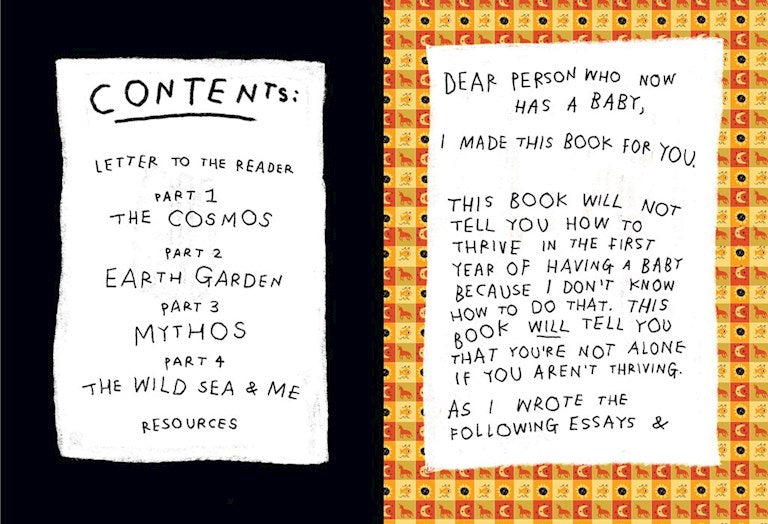 CONTENTS:
LETTER TO THE READER
PART 1
THE COSMOS
PART 2
EARTH GARDEN
PART 3
MYTHOS
PART 4
THE WILD SEA & ME
RESOURCES
DEAR PERSON WHO NOW
HAS A BABY,
I MADE THIS BOOK FOR YOU.
THIS BOOK WILL NOT
TELL YOU HOW TO
THRIVE IN THE FIRST
YEAR OF HAVING A BABY
BECAUSE I DON'T KNOW
HOW TO DO THAT. THIS
BOOK WILL TELL YOU
THAT YOU'RE NOT ALONE
IF YOU AREN'T THRIVING.
AS I WROTE THE
FOLLOWING ESSAYS &